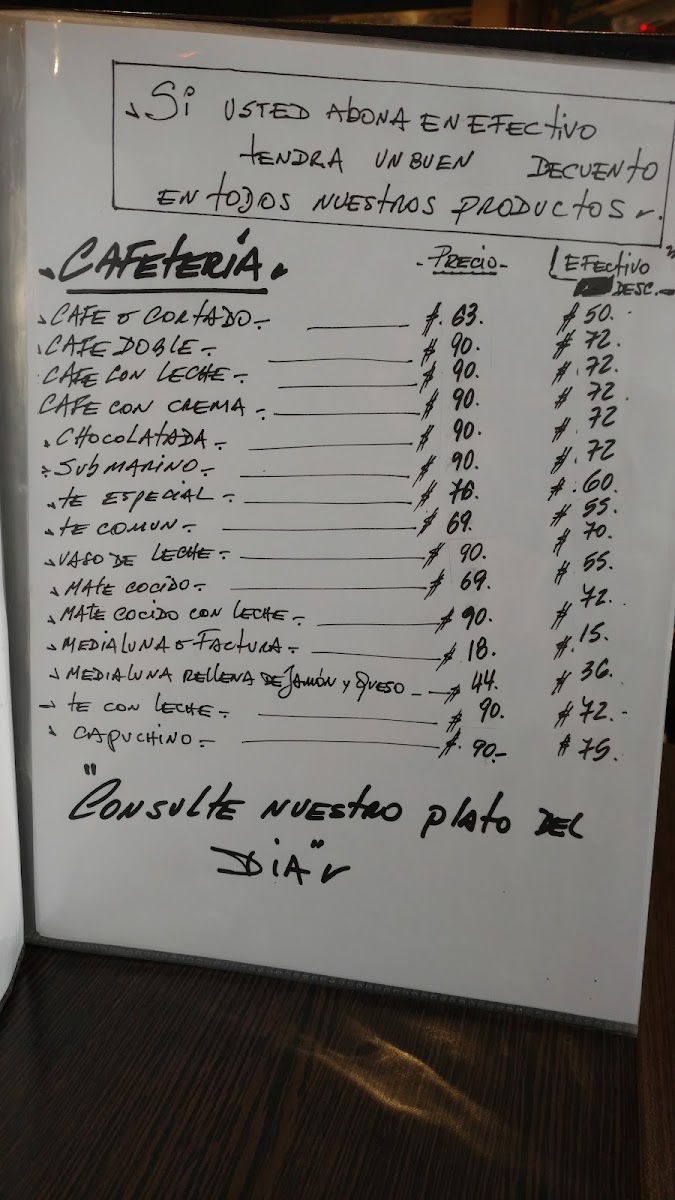 Si USTED ABONA EN EFECTIVO
TENDRA UN BUEN DECUENTO
EN TODOS NUESTROS PRODUCTOS
CAFETERÍA. - PRECIO - EFECTIVO
DESC.-
CAFE o CORTADO.- $. 63. $ 50.
CAFE DOBLE.- $ 90. $ 72.
CAFE CON LECHE.- $ 90. $. 72.
CAFE CON CREMA.- $ 90. $ 72
. CHOCOLATADA.- $ 90. $ 72
SUBMARINO.- $ 90. $. 72
TE ESPECIAL.- $ 76. $. 60.
TE COMUN.- $ 69. $ 55.
VASO DE LECHE.- $ 90. $ 70.
MATE COCIDO.- $ 69. $ 55.
MATE COCIDO CON LECHE.- $ 90. $ 72.
MEDIALUNA o FACTURA.- $ 18. $. 15.
MEDIALUNA RELLENA DE JAMÓN Y QUESO - $ 44. $ 36.
TE CON LECHE.- $ 90. $ 72.-
CAPUCHINO.- $. 90.- $ 75.
"CONSULTE NUESTRO PLATO DEL
DIA"